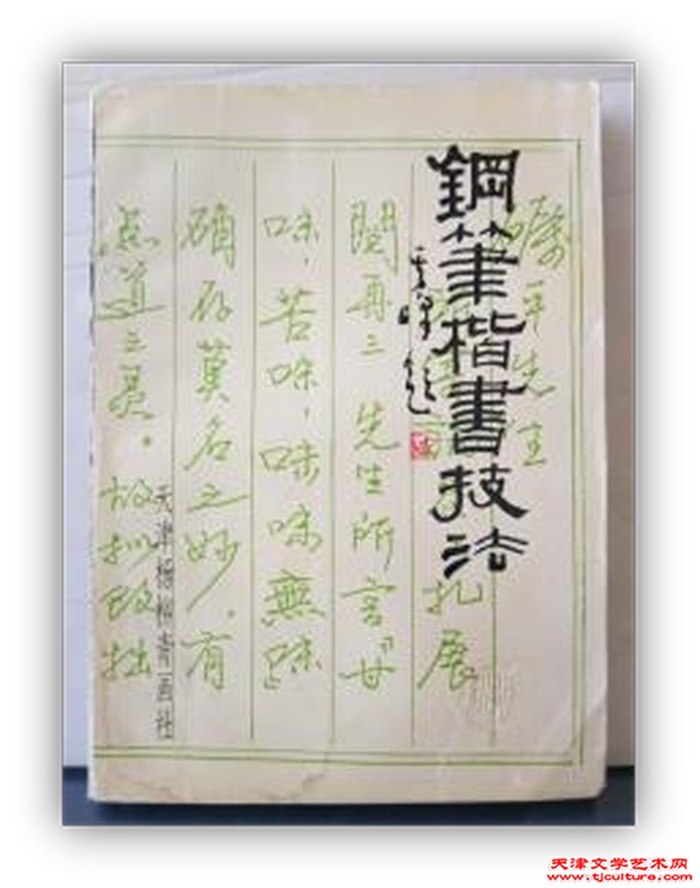 鋼筆楷書技法
平先生
札展
閱再二先生所言『甘
味、苦味、味味無味』
确存莫名之妙。有
点道之美。故拟改拙
天津杨柳青画社
天津文学艺术网
www.tjculture.com